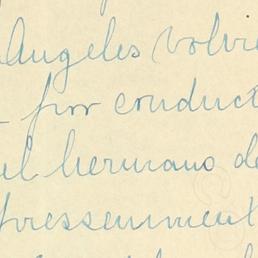 Angeles volvi
por conduct
el hermano de
pressenment